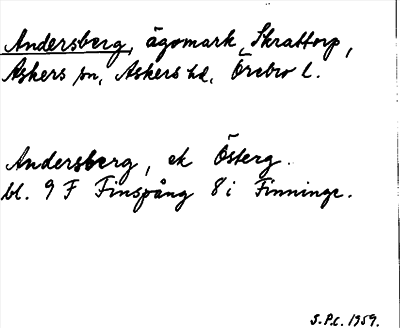 Andersberg, ägomark, Skrattorp,
Askers sn, Askers hd, Örebro l.
Andersberg, ek Österg.
bl. 9 F Finspång 8 i Finninge.
S.P.C. 1959.